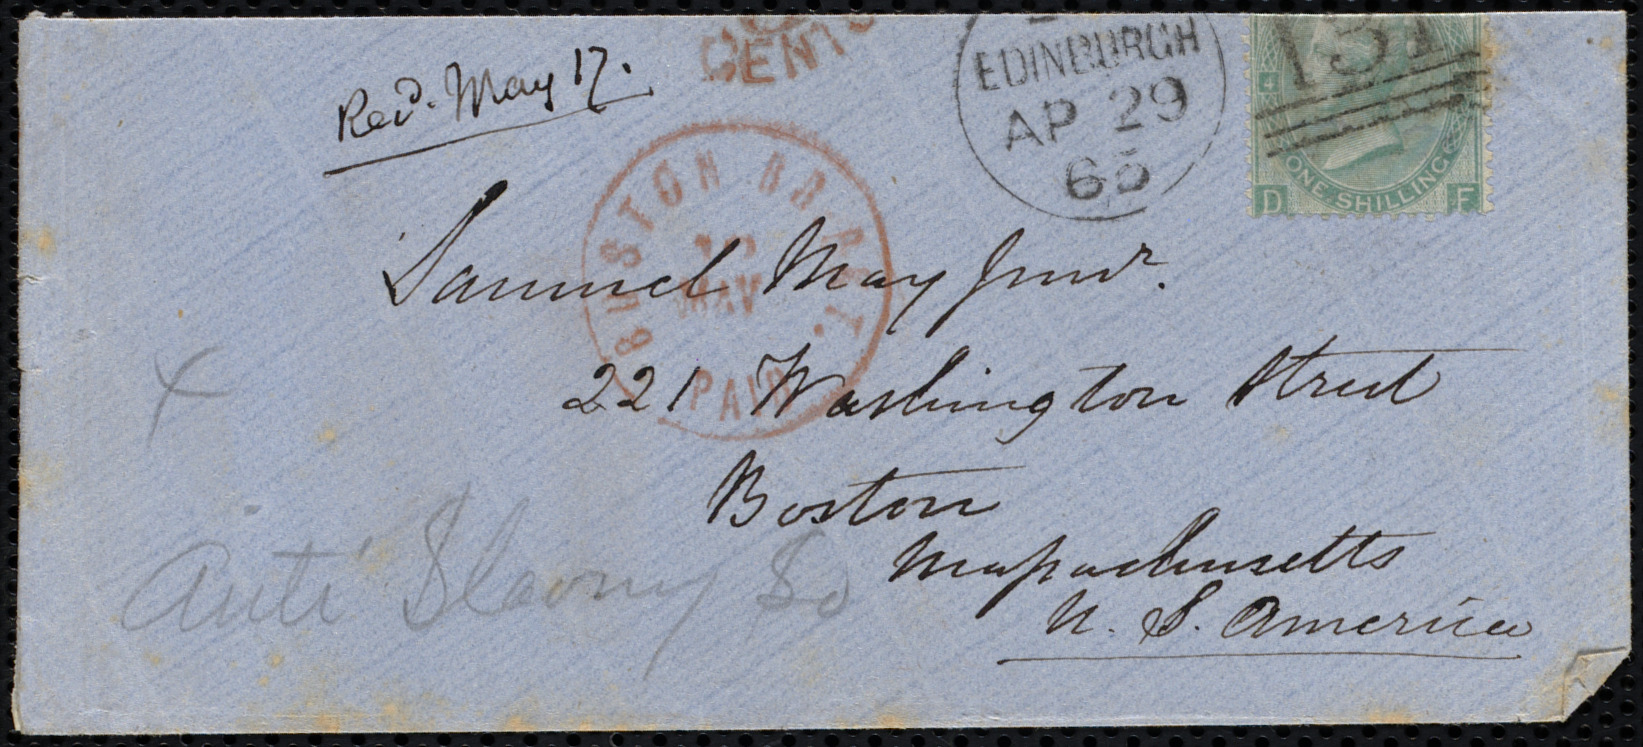 CENTS
Recd. May 17.
EDINBURGH
AP 29
65
131
4
ONE SHILLING
D F
BOSTON BR. PKT.
MAY
PAID
Samuel May Junr.
221 Washington Street
Boston
Massachusetts
U. S. America
Anti Slavery So